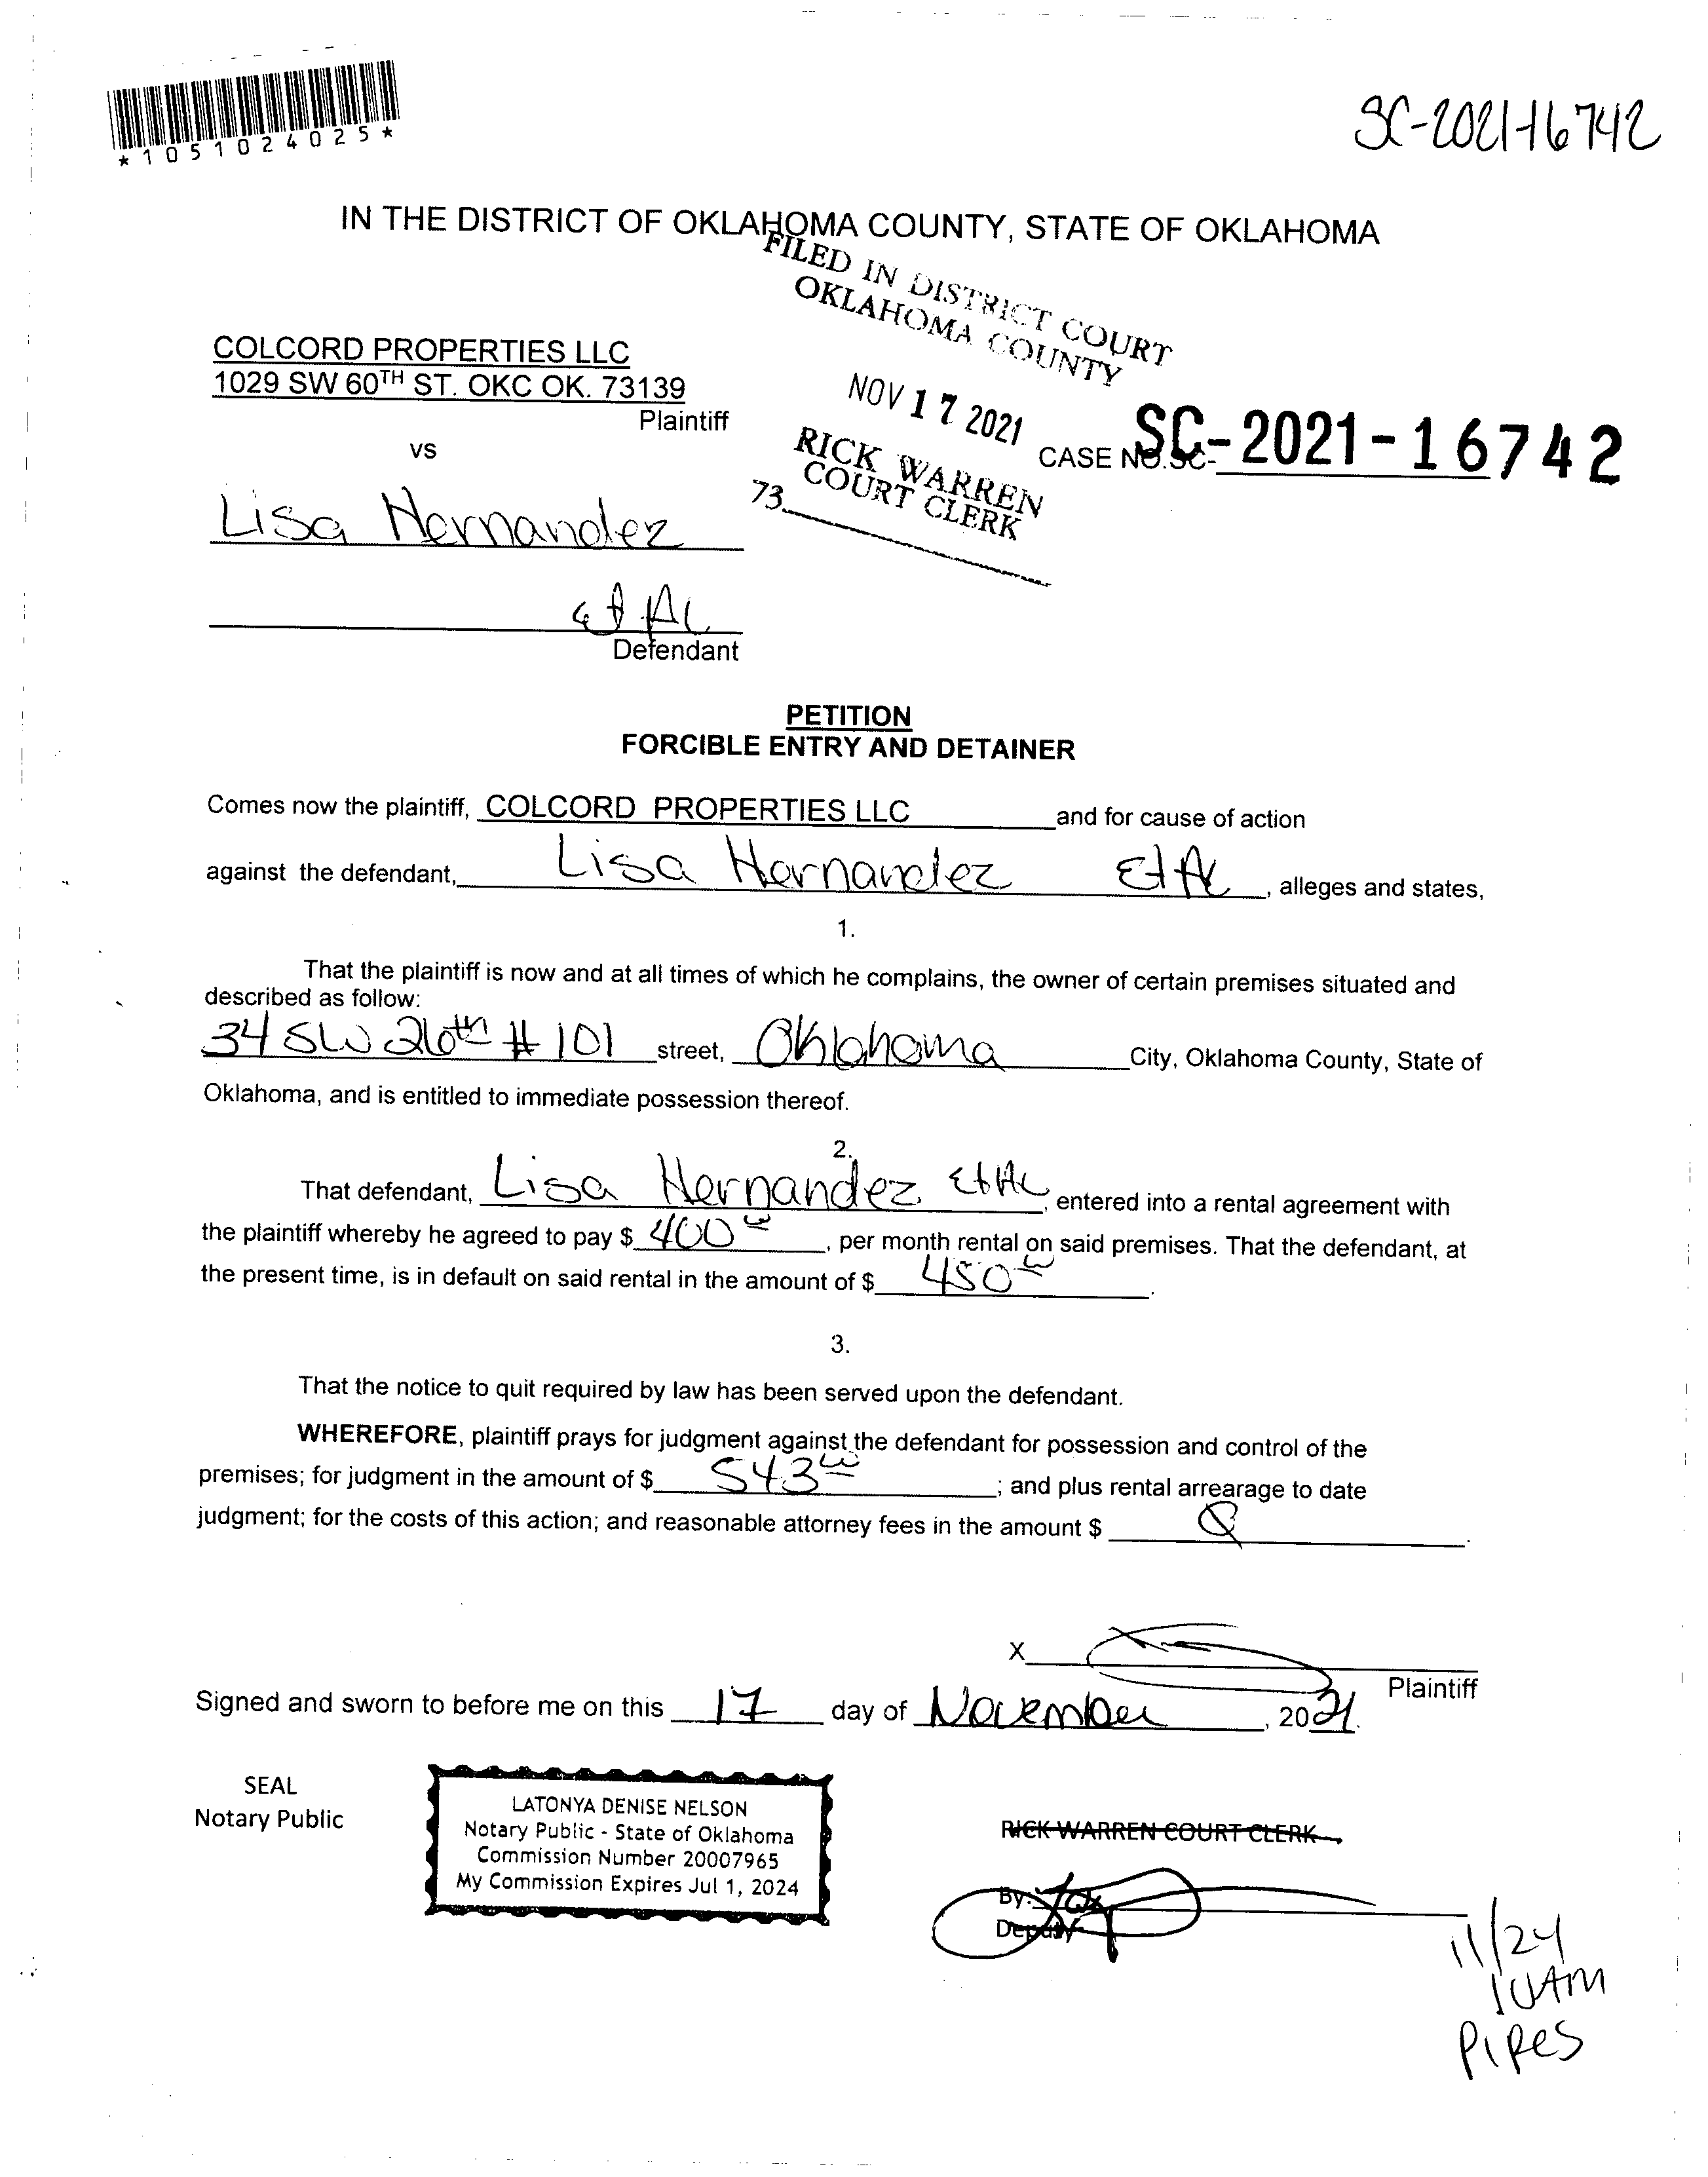 *1051024025*
SC-2021-16742
IN THE DISTRICT OF OKLAHOMA COUNTY, STATE OF OKLAHOMA
FILED IN DISTRICT COURT
OKLAHOMA COUNTY
NOV 17 2021
RICK WARREN
COURT CLERK
73
COLCORD PROPERTIES LLC
1029 SW 60TH ST. OKC OK. 73139
Plaintiff
vs
CASE NO.SC- SC-2021-16742
Lisa Hernandez
et Al
Defendant
PETITION
FORCIBLE ENTRY AND DETAINER
Comes now the plaintiff, COLCORD PROPERTIES LLC and for cause of action
against the defendant, Lisa Hernandez Et Al, alleges and states,
1.
That the plaintiff is now and at all times of which he complains, the owner of certain premises situated and
described as follow:
34 SW 26th # 101 street, Oklahoma City, Oklahoma County, State of
Oklahoma, and is entitled to immediate possession thereof.
2.
That defendant, Lisa Hernandez Et Al, entered into a rental agreement with
the plaintiff whereby he agreed to pay $ 400 00, per month rental on said premises. That the defendant, at
the present time, is in default on said rental in the amount of $ 450 00.
3.
That the notice to quit required by law has been served upon the defendant.
WHEREFORE, plaintiff prays for judgment against the defendant for possession and control of the
premises; for judgment in the amount of $ 543 00; and plus rental arrearage to date
judgment; for the costs of this action; and reasonable attorney fees in the amount $
X
Plaintiff
Signed and sworn to before me on this 17 day of November, 2021.
SEAL
Notary Public
LATONYA DENISE NELSON
Notary Public - State of Oklahoma
Commission Number 20007965
My Commission Expires Jul 1, 2024
RICK WARREN COURT CLERK
By:
Deputy
11/24
10AM
PIPES